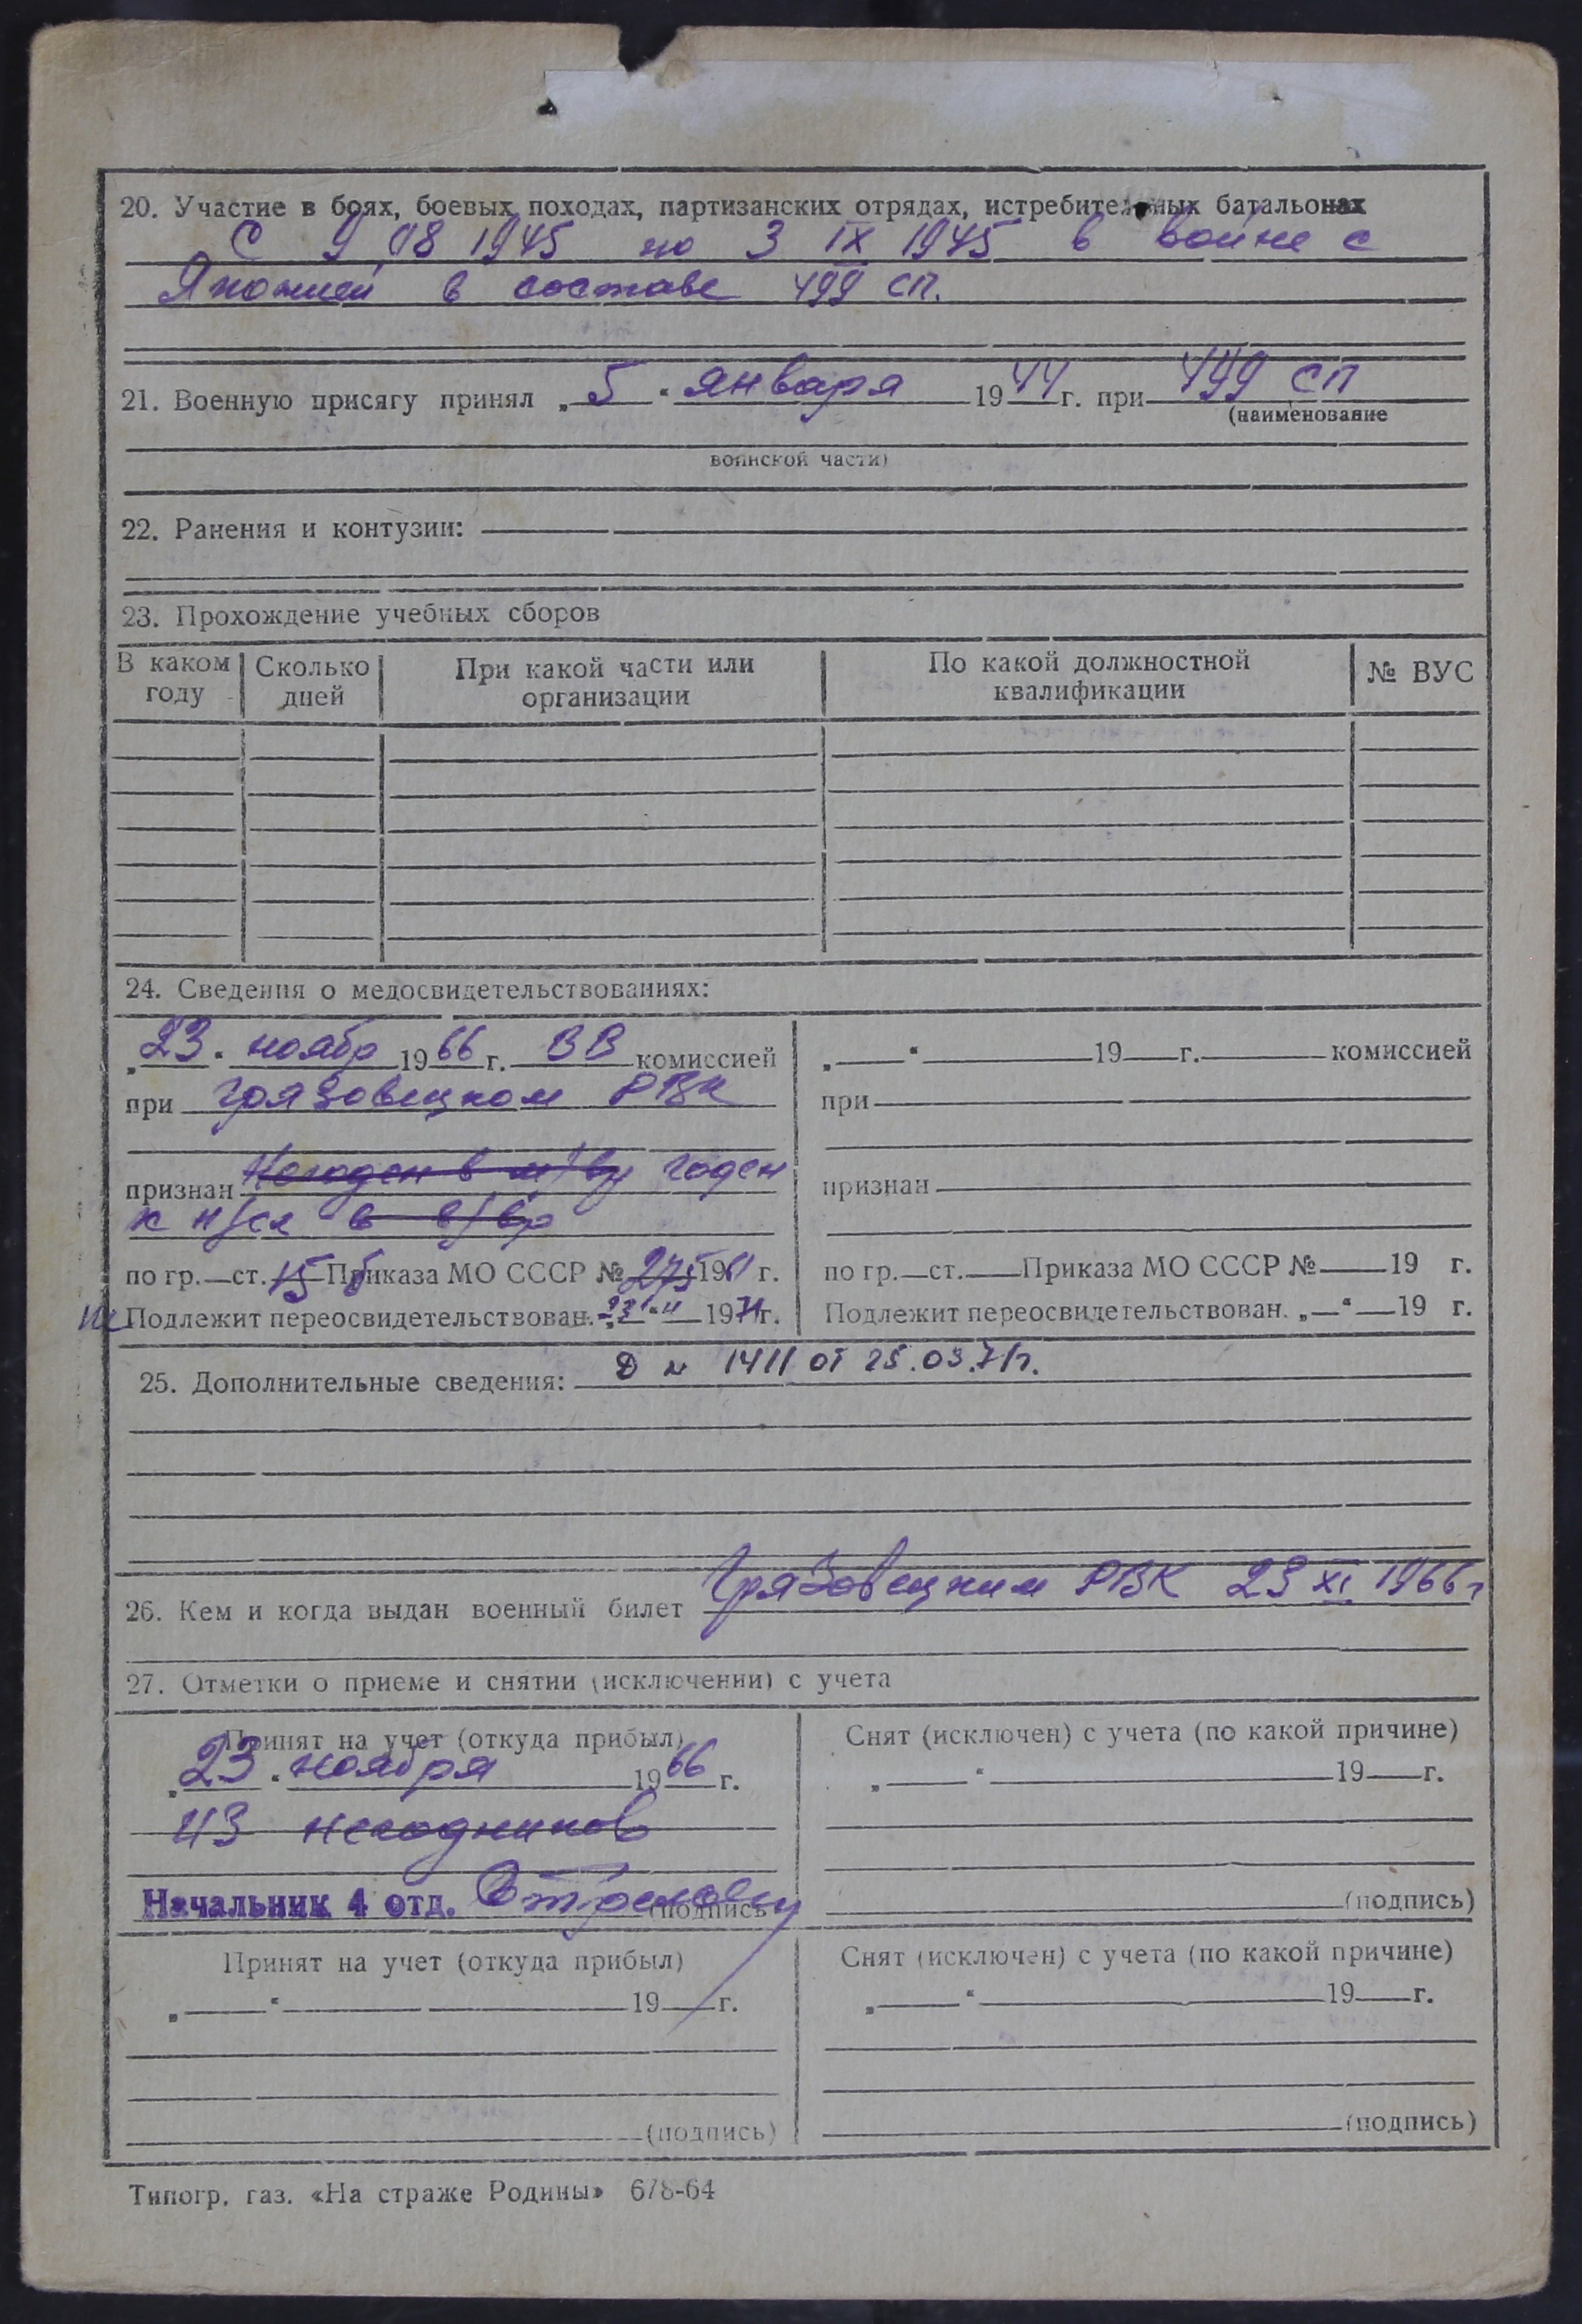 20. Участие в боях, боевых походах, партизанских отрядах, истребительных батальонах
С 9 08 1945 по 3 IX 1945 в войне с
Японией в составе 499 сп.
21. Военную присягу принял „5“ января 1944 г. при 499 сп
(наименование
воинской части)
22. Ранения и контузии:
23. Прохождение учебных сборов
В каком году Сколько дней При какой части или организации По какой должностной квалификации № ВУС
24. Сведения о медосвидетельствованиях:
„23“ ноябр 1966 г. ВВ комиссией
при Грязовецком РВК
признан Негоден в м/вр годен
к н/сл в в/вр
по гр. ст. 15б Приказа МО СССР № 275 1961 г.
не Подлежит переосвидетельствован. „23“ 11 1971 г.
„ “ 19 г. комиссией
при
признан
по гр. ст. Приказа МО СССР № 19 г.
Подлежит переосвидетельствован. „ “ 19 г.
25. Дополнительные сведения: Д № 1411 от 25.03.71г.
26. Кем и когда выдан военный билет Грязовецким РВК 23 XI 1966 г
27. Отметки о приеме и снятии (исключении) с учета
Принят на учет (откуда прибыл)
„23“ ноября 1966 г.
из негодников
Начальник 4 отд. (подпись)
Снят (исключен) с учета (по какой причине)
„ “ 19 г.
(подпись)
Принят на учет (откуда прибыл)
„ “ 19 г.
(подпись)
Снят (исключен) с учета (по какой причине)
„ “ 19 г.
(подпись)
Типогр. газ. «На страже Родины» 678-64